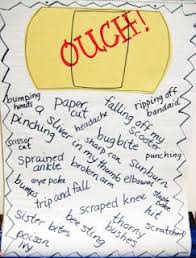 OUCH!
bumping heads
paper cut
falling off my scooter
ripping off bandaid
pinching
sliver in my thumb
headache
bug bite
sharp can
punching
scissor cut
sprained ankle
broken arm
elbowed
sunburn
eye poke
bumps
maybe
trip and fall
scraped knee
hit
scratched
sister bites
bee sting
thorny bushes
poison ivy